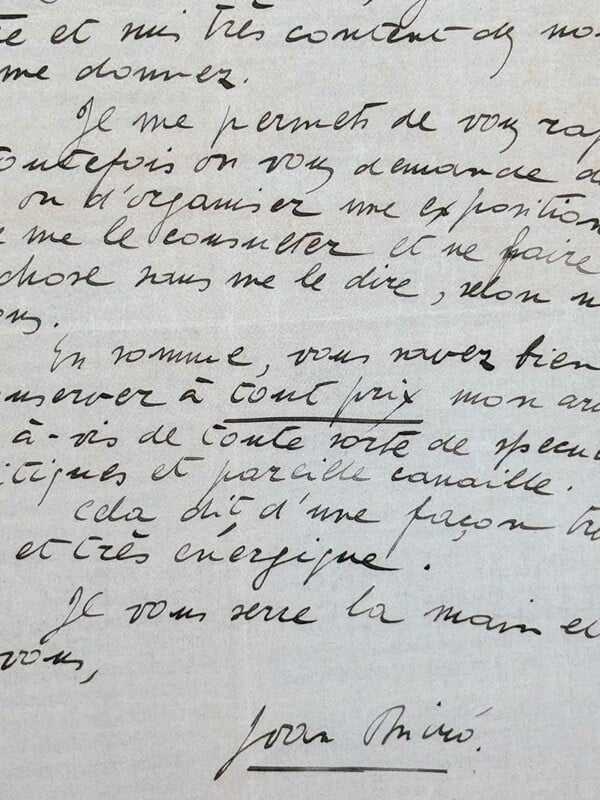 et suis très content de
me donnez.
Je me permets de vous rap
toutefois on vous demande d
ou d'organiser une exposition
me le consulter et ne faire
chose sans me le dire, selon n
ons.
En somme, vous savez bien
nserver à tout prix mon
à-vis de toute sorte de specu
itiques et pareille canaille.
Cela dit d'une façon tr
et très énergique.
Je vous serre la main et
vous,
Joan Miró.